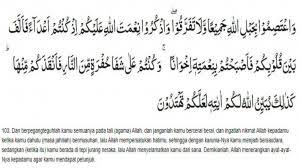 وَاعْتَصِمُوا بِحَبْلِ اللَّهِ جَمِيعًا وَلَا تَفَرَّقُوا ۚ وَاذْكُرُوا نِعْمَتَ اللَّهِ عَلَيْكُمْ إِذْ كُنْتُمْ أَعْدَاءً فَأَلَّفَ
بَيْنَ قُلُوبِكُمْ فَأَصْبَحْتُمْ بِنِعْمَتِهِ إِخْوَانًا وَكُنْتُمْ عَلَىٰ شَفَا حُفْرَةٍ مِنَ النَّارِ فَأَنْقَذَكُمْ مِنْهَا ۗ
كَذَٰلِكَ يُبَيِّنُ اللَّهُ لَكُمْ آيَاتِهِ لَعَلَّكُمْ تَهْتَدُونَ
103. Dan berpeganglah kamu semuanya pada tali (agama) Allah, dan janganlah kamu bercerai berai, dan ingatlah nikmat Allah kepadamu
ketika kamu dahulu (masa jahiliah) bermusuhan, lalu Allah mempersatukan hatimu, sehingga dengan karunia-Nya kamu menjadi bersaudara
sedangkan (ketika itu) kamu berada di tepi jurang neraka, lalu Allah menyelamatkan kamu dari sana. Demikianlah, Allah menerangkan ayat-ayat-
Nya kepadamu agar kamu mendapat petunjuk.